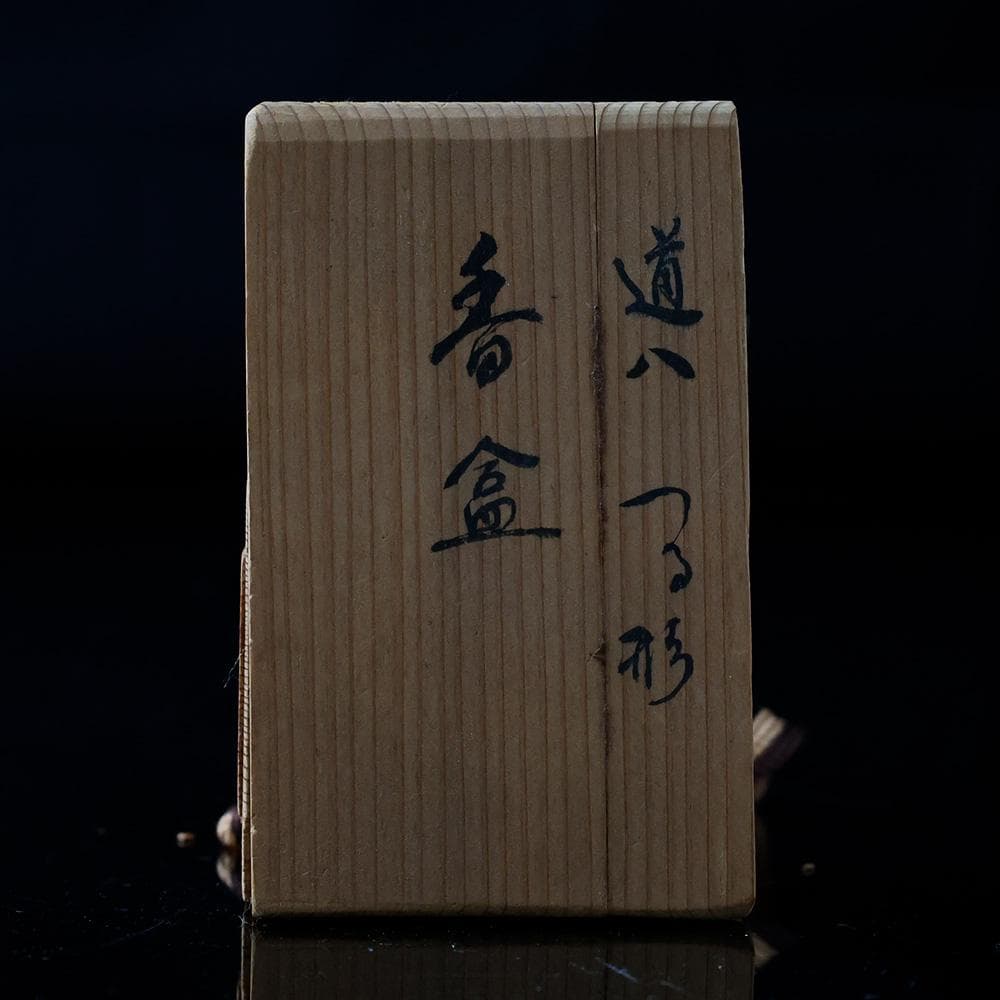 道八 つる形
香盒